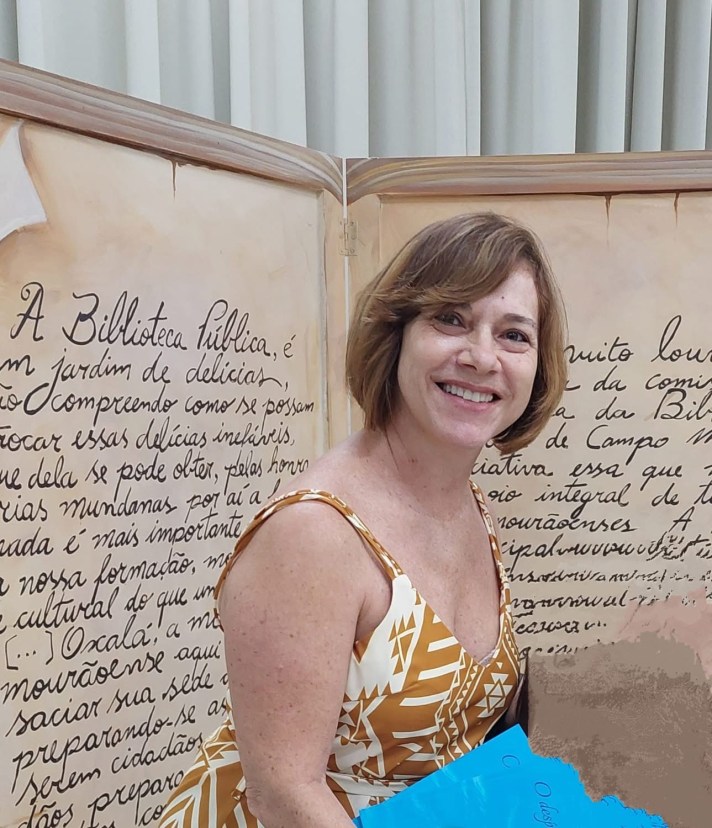 A Biblioteca Pública, é
m jardim de delícias,
ão compreendo como se possam
rocar essas delícias inefáveis,
ue dela se pode obter, pelas honra
rias mundanas por aí a
nada é mais importante
a nossa formação, mo
e cultural do que um
[...] Oxalá, a m
mourãoense aqui
saciar sua sede
preparando-se as
serem cidadãos
dãos prepara
muito lou
a da comis
a da Bib
de Campo M
ciativa essa que
oio integral de t
mourãoenses. A
cipal
O desp
C